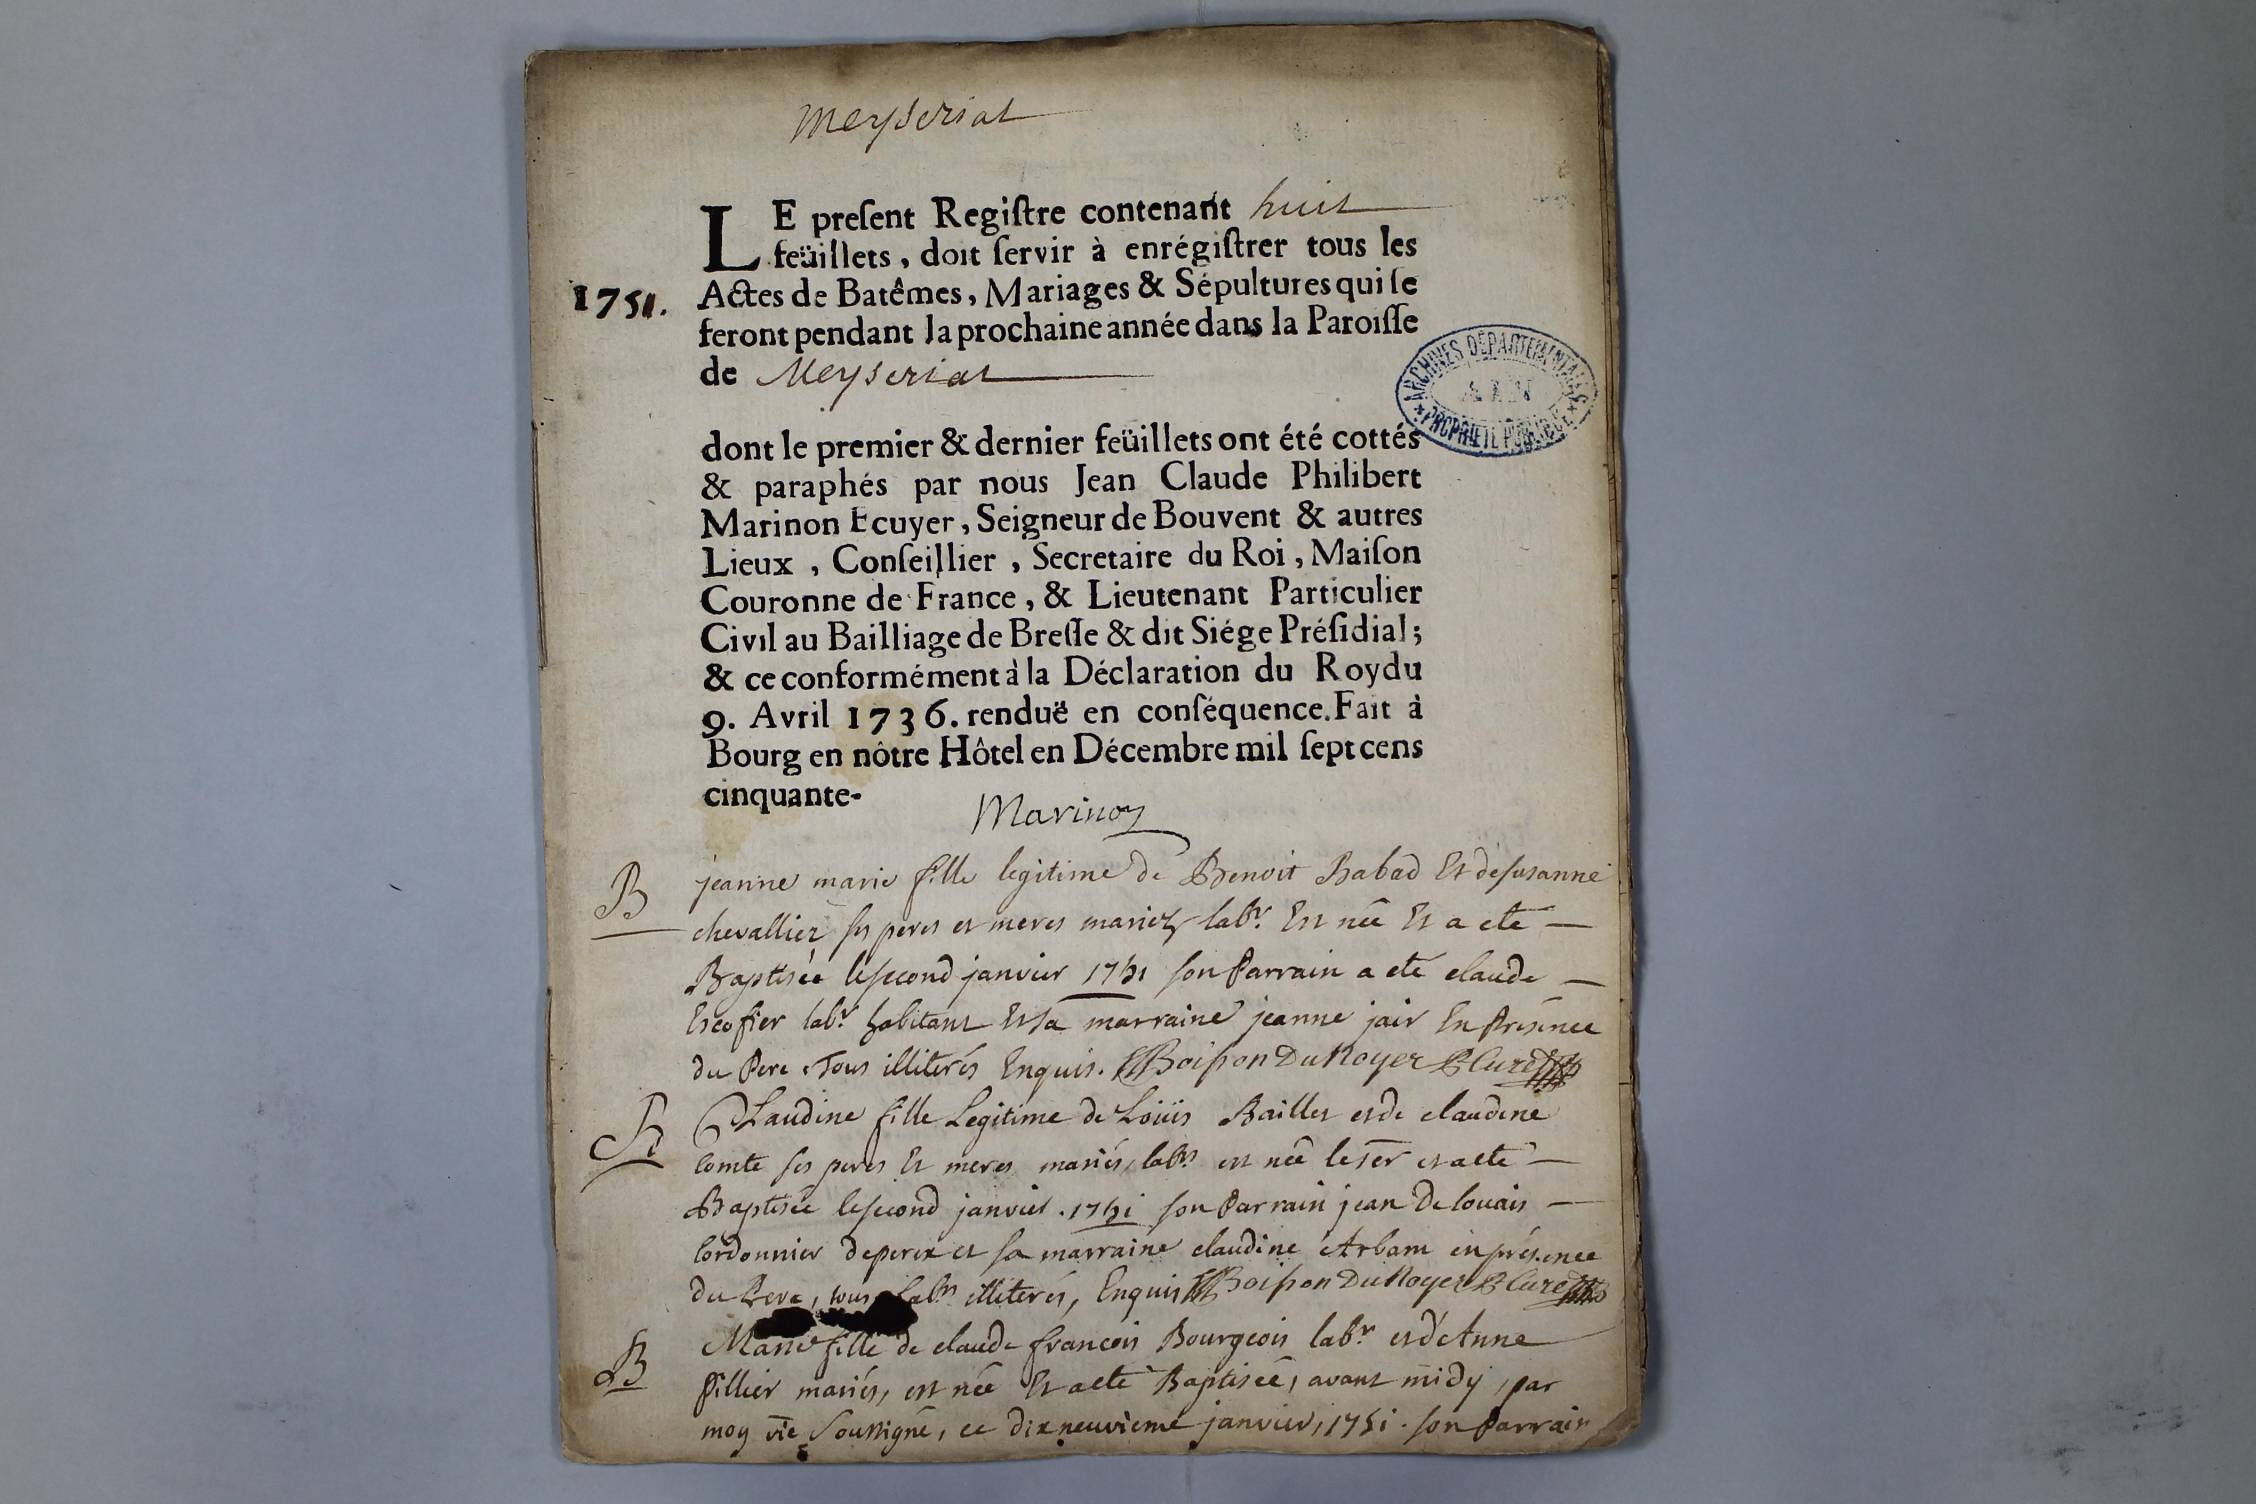 Meyseriat
LE preſent Regiſtre contenant huit
feüillets, doit ſervir à enrégiſtrer tous les
1751. Actes de Batêmes, Mariages & Sépultures qui ſe
feront pendant la prochaine année dans la Paroiſſe
de Meyseriat
ARCHIVES DÉPARTEMENTALES
AIN
PROPRIÉTÉ PUBLIQUE
dont le premier & dernier feüillets ont été cottés
& paraphés par nous Jean Claude Philibert
Marinon Ecuyer, Seigneur de Bouvent & autres
Lieux, Conſeillier, Secretaire du Roi, Maiſon
Couronne de France, & Lieutenant Particulier
Civil au Bailliage de Breſſe & dit Siége Préſidial;
& ce conformément à la Déclaration du Roy du
9. Avril 1736. renduë en conſéquence. Fait à
Bourg en nôtre Hôtel en Décembre mil ſept cens
cinquante-
Marinon
B jeanne marie fille legitime de Benoit Babad Et de susanne
chevallier ses peres et meres mariez labr. Est née Et a eté
Baptisée le second janvier 1751 son Parrain a eté claude
Escofier labr. habitant Et sa marraine jeanne jair En Présence
du Pere Tous illiterés Enquis. Boisson Du Noyer Curé
B Claudine fille Legitime de Loüis Baillet et de claudine
Comte ses peres Et meres mariés, labrs est née le 1er et a eté
Baptisée le second janvier. 1751 son Parrain jean De louais
Cordonnier de perex et sa marraine claudine Arbam en présence
du Pere, tous labrs illiterés, Enquis Boisson Du Noyer Curé
B Marie fille de claude françois Bourgeois labr. et d'Anne
Pillier mariés, est née Et a eté Baptisée, avant midy, par
moy vic Soussigné, ce dix neuvieme janvier, 1751. son Parrain